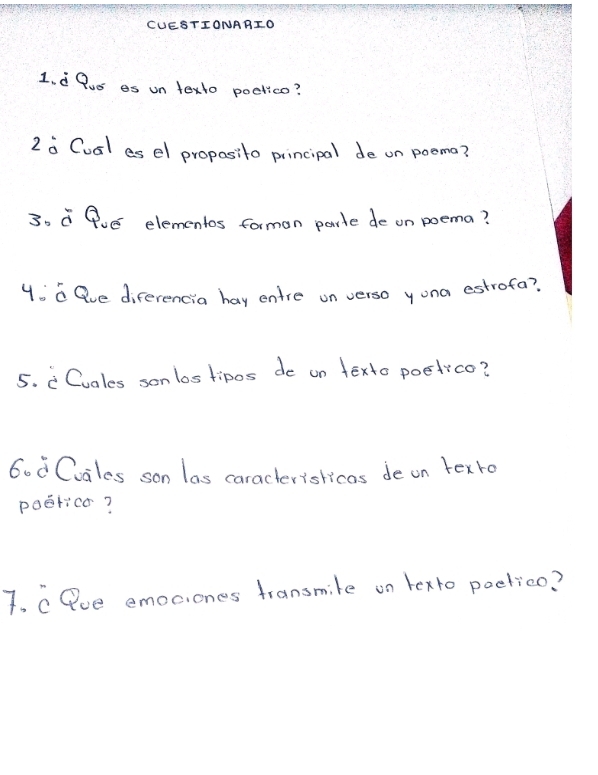 CUESTIONARIO
1. ¿Qué es un texto poetico?
2 ¿Cual es el proposito principal de un poema?
3. ¿Qué elementos forman parte de un poema?
4. ¿Que diferencia hay entre un verso y una estrofa?.
5. ¿Cuales son los tipos de un téxto poetico?
6. ¿Cuáles son las caracteristicas de un texto
poético?
7. ¿Que emociones transmite un texto poetico?